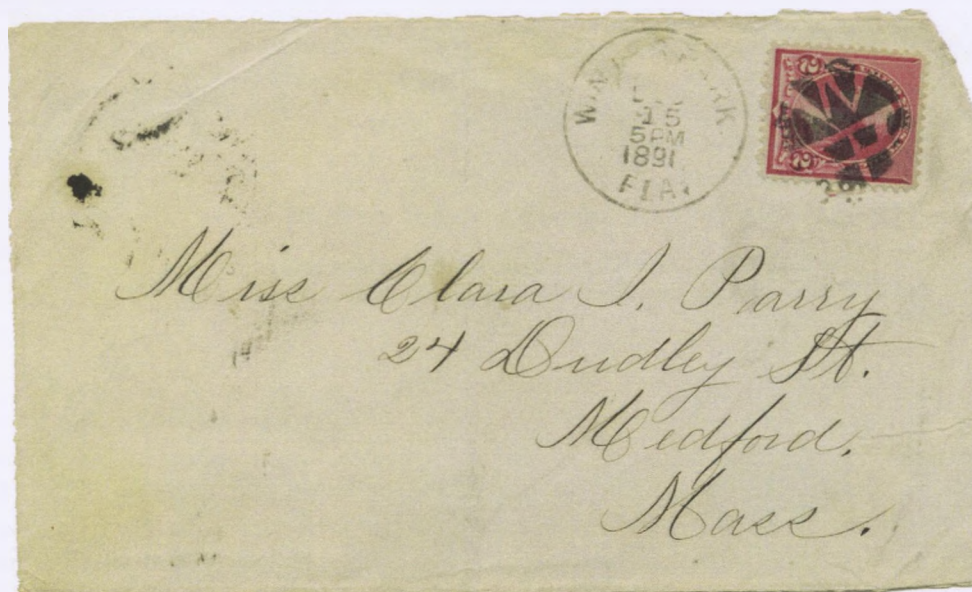 25
5PM
1891
FLA.
2
2
Miss Clara J. Parry
24 Dudley St.
Medford.
Mass.